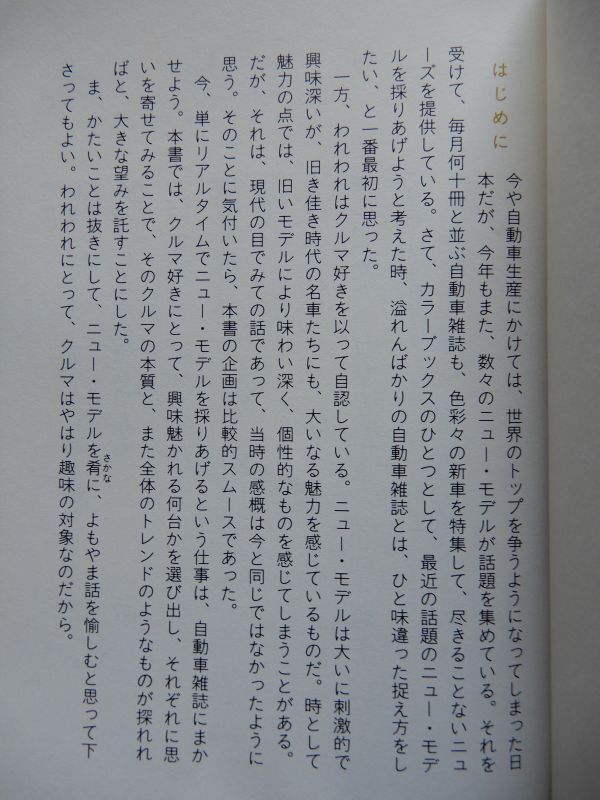 はじめに
今や自動車生産にかけては、世界のトップを争うようになってしまった日
本だが、今年もまた、数々のニュー・モデルが話題を集めている。それを
受けて、毎月何十冊と並ぶ自動車雑誌も、色彩々の新車を特集して、尽きることないニュ
ーズを提供している。さて、カラーブックスのひとつとして、最近の話題のニュー・モデ
ルを採りあげようと考えた時、溢れんばかりの自動車雑誌とは、ひと味違った捉え方をし
たい、と一番最初に思った。
一方、われわれはクルマ好きを以って自認している。ニュー・モデルは大いに刺激的で
興味深いが、旧き佳き時代の名車たちにも、大いなる魅力を感じているものだ。時として
魅力の点では、旧いモデルにより味わい深く、個性的なものを感じてしまうことがある。
だが、それは、現代の目でみての話であって、当時の感慨は今と同じではなかったように
思う。そのことに気付いたら、本書の企画は比較的スムースであった。
今、単にリアルタイムでニュー・モデルを採りあげるという仕事は、自動車雑誌にまか
せよう。本書では、クルマ好きにとって、興味魅かれる何台かを選び出し、それぞれに思
いを寄せてみることで、そのクルマの本質と、また全体のトレンドのようなものが探れれ
ばと、大きな望みを託すことにした。
ま、かたいことは抜きにして、ニュー・モデルを肴に、よもやま話を愉しむと思って下
さかな
さってもよい。われわれにとって、クルマはやはり趣味の対象なのだから。